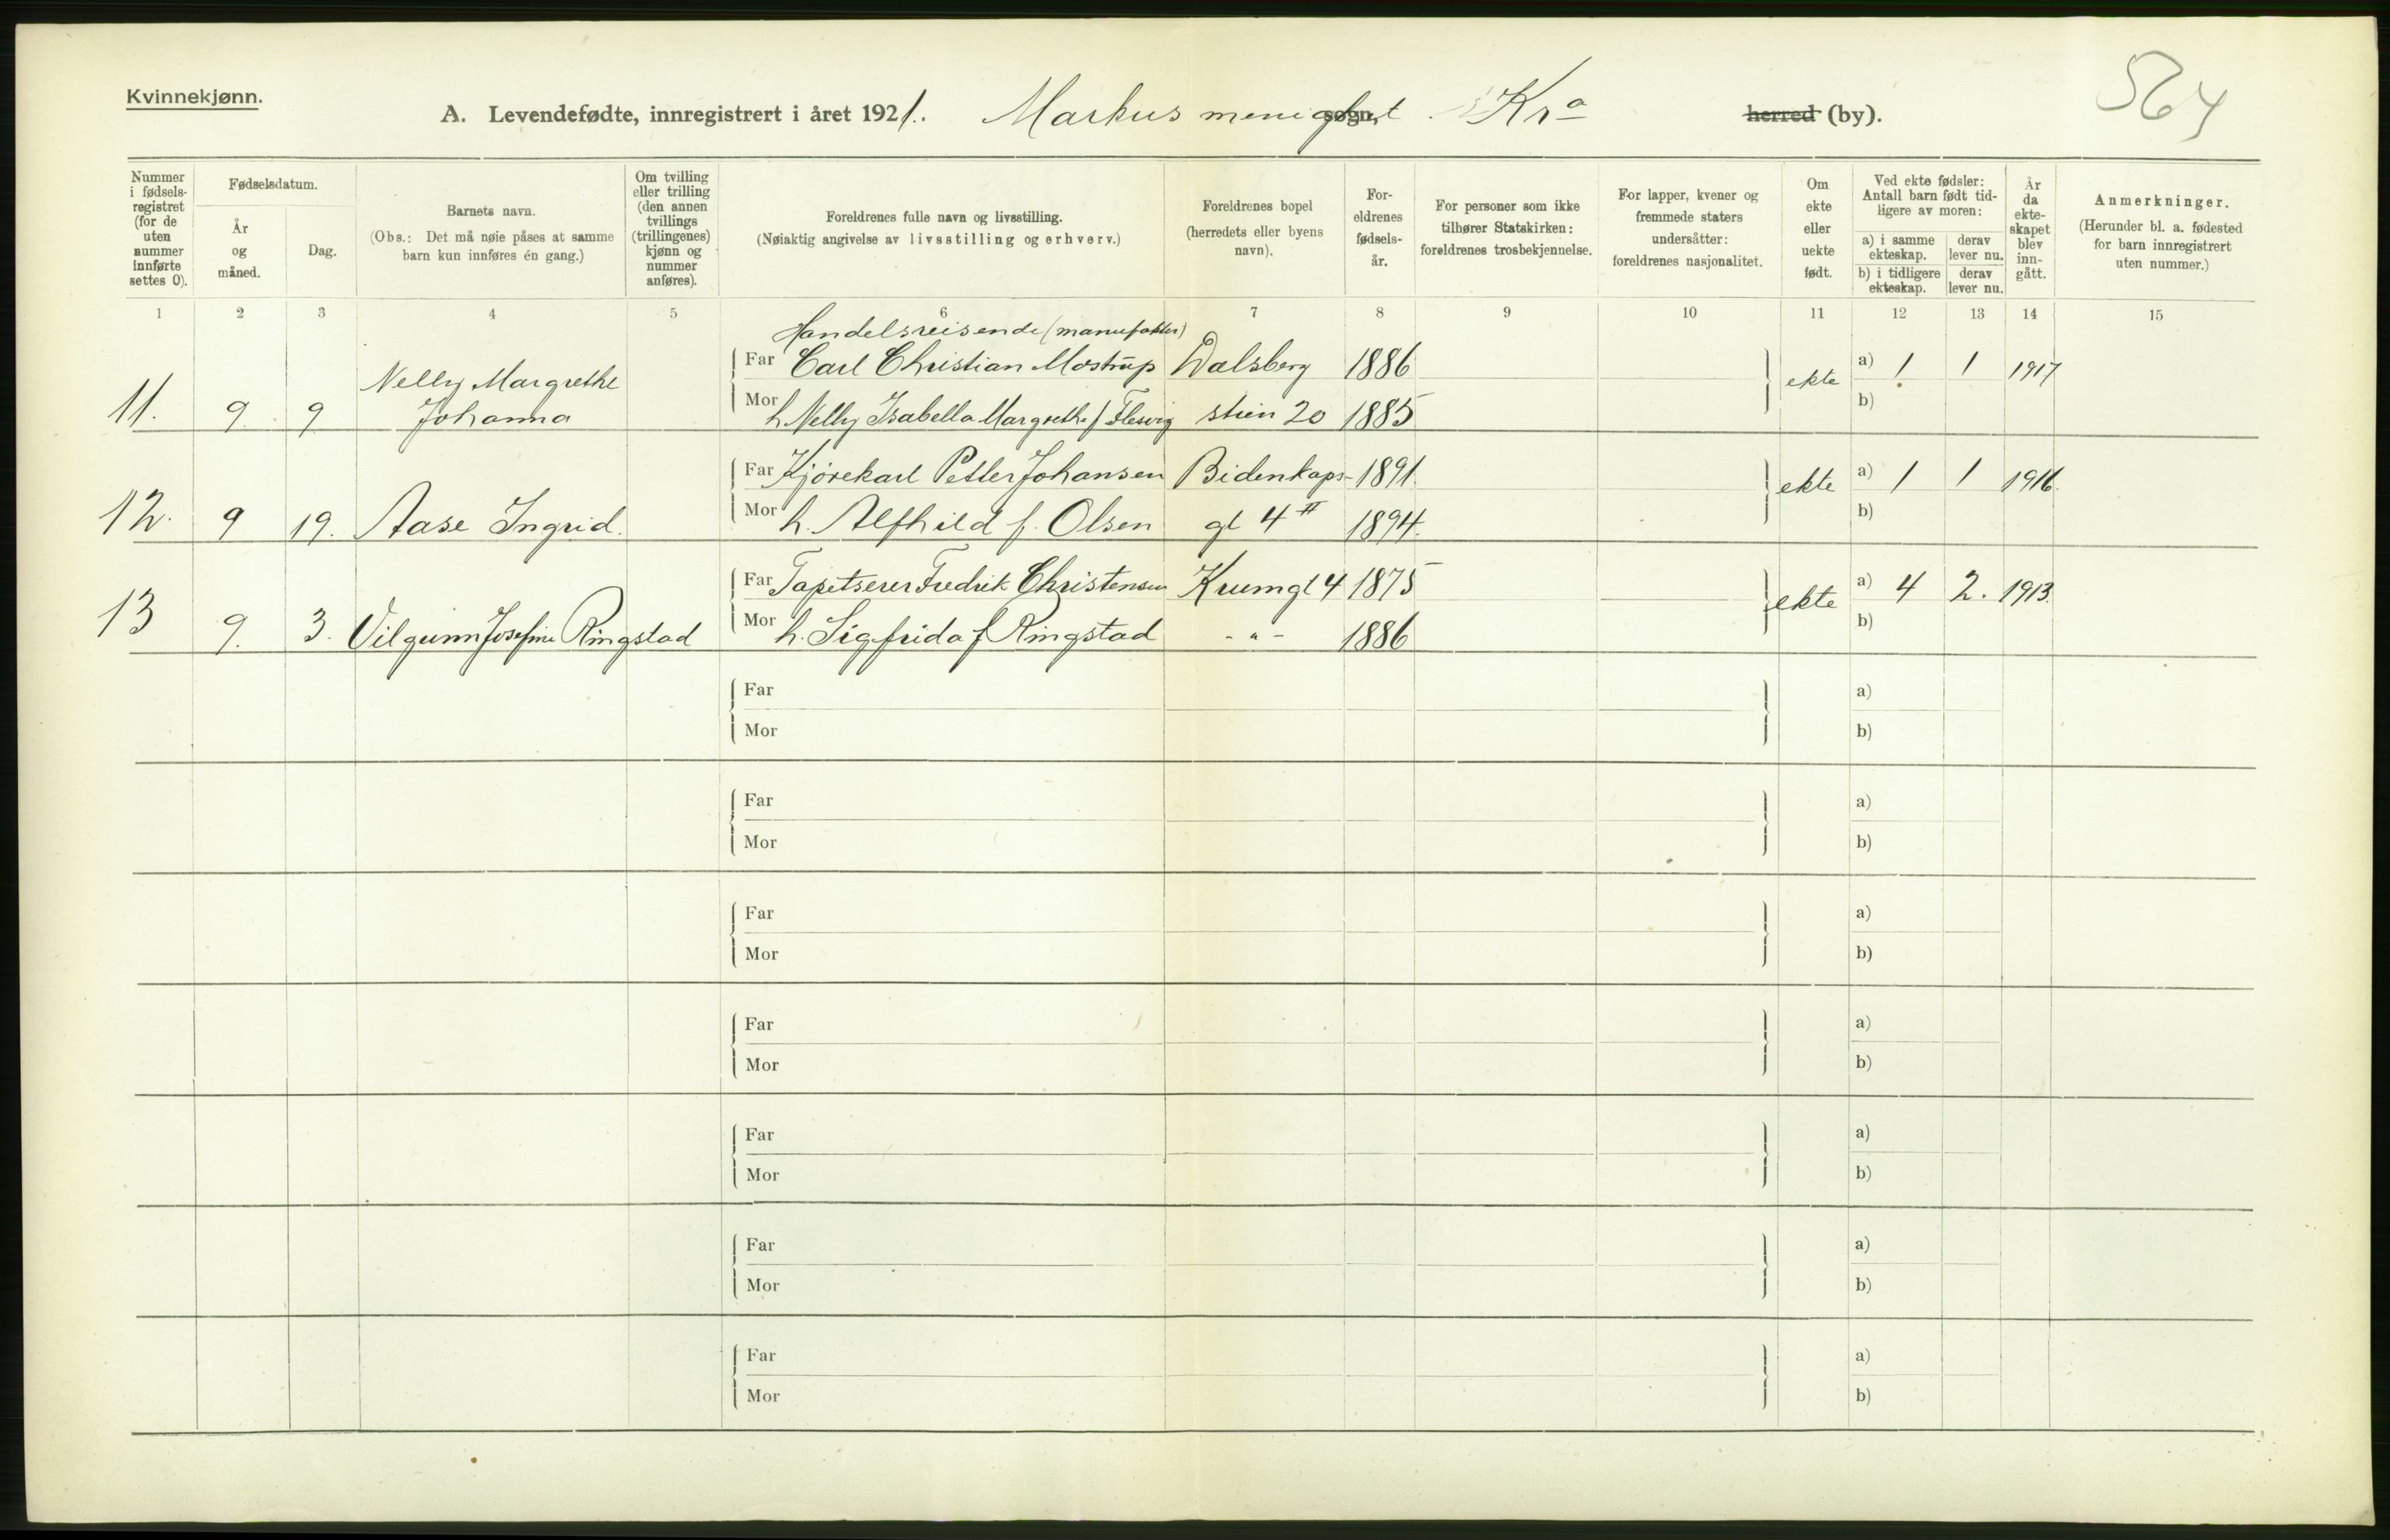 Kvinnekjønn.
564
A. Levendefødte, innregistrert i året 1921. Markus menighet sogn, Kra herred (by).
Nummer i fødsels-registret (for de uten nummer innførte settes 0).
Fødselsdatum.
År og måned.
Dag.
Barnets navn.
(Obs.: Det må nøie påses at samme barn kun innføres én gang.)
Om tvilling eller trilling (den annen tvillings (trillingenes) kjønn og nummer anføres).
Foreldrenes fulle navn og livsstilling.
(Nøiaktig angivelse av livsstilling og erhverv.)
Foreldrenes bopel (herredets eller byens navn).
For-eldrenes fødsels-år.
For personer som ikke tilhører Statskirken: foreldrenes trosbekjennelse.
For lapper, kvener og fremmede staters undersåtter: foreldrenes nasjonalitet.
Om ekte eller uekte født.
Ved ekte fødsler: Antall barn født tid-ligere av moren:
a) i samme ekteskap.
derav lever nu.
b) i tidligere ekteskap.
derav lever nu.
År da ekte-skapet blev inn-gått.
Anmerkninger.
(Herunder bl. a. fødested for barn innregistrert uten nummer.)
1 2 3 4 5 6 7 8 9 10 11 12 13 14 15
Handelsreisende (manufaktur)
Nelly Margrethe
Far Carl Christian Mostrup Valsberg 1886 ekte a) 1 1 1917
11. 9. 9 Johanna
Mor h. Nelly Isabella Margrethe f. Flesvig stien 20 1885 b)
Far Kjørekarl Petter Johansen Bidenkaps- 1891. ekte a) 1 1 1916.
12. 9 19. Aase Ingrid. Mor h. Alfhild f. Olsen gt 4 II 1894. b)
Far Tapetserer Fredrik Christensen Krumgt 4 1875 ekte a) 4 2. 1913.
13 9. 3. Vilgunn Josefine Ringstad Mor h. Sigfrida f. Ringstad - " - 1886 b)
Far a)
Mor b)
Far a)
Mor b)
Far a)
Mor b)
Far a)
Mor b)
Far a)
Mor b)
Far a)
Mor b)
Far a)
Mor b)